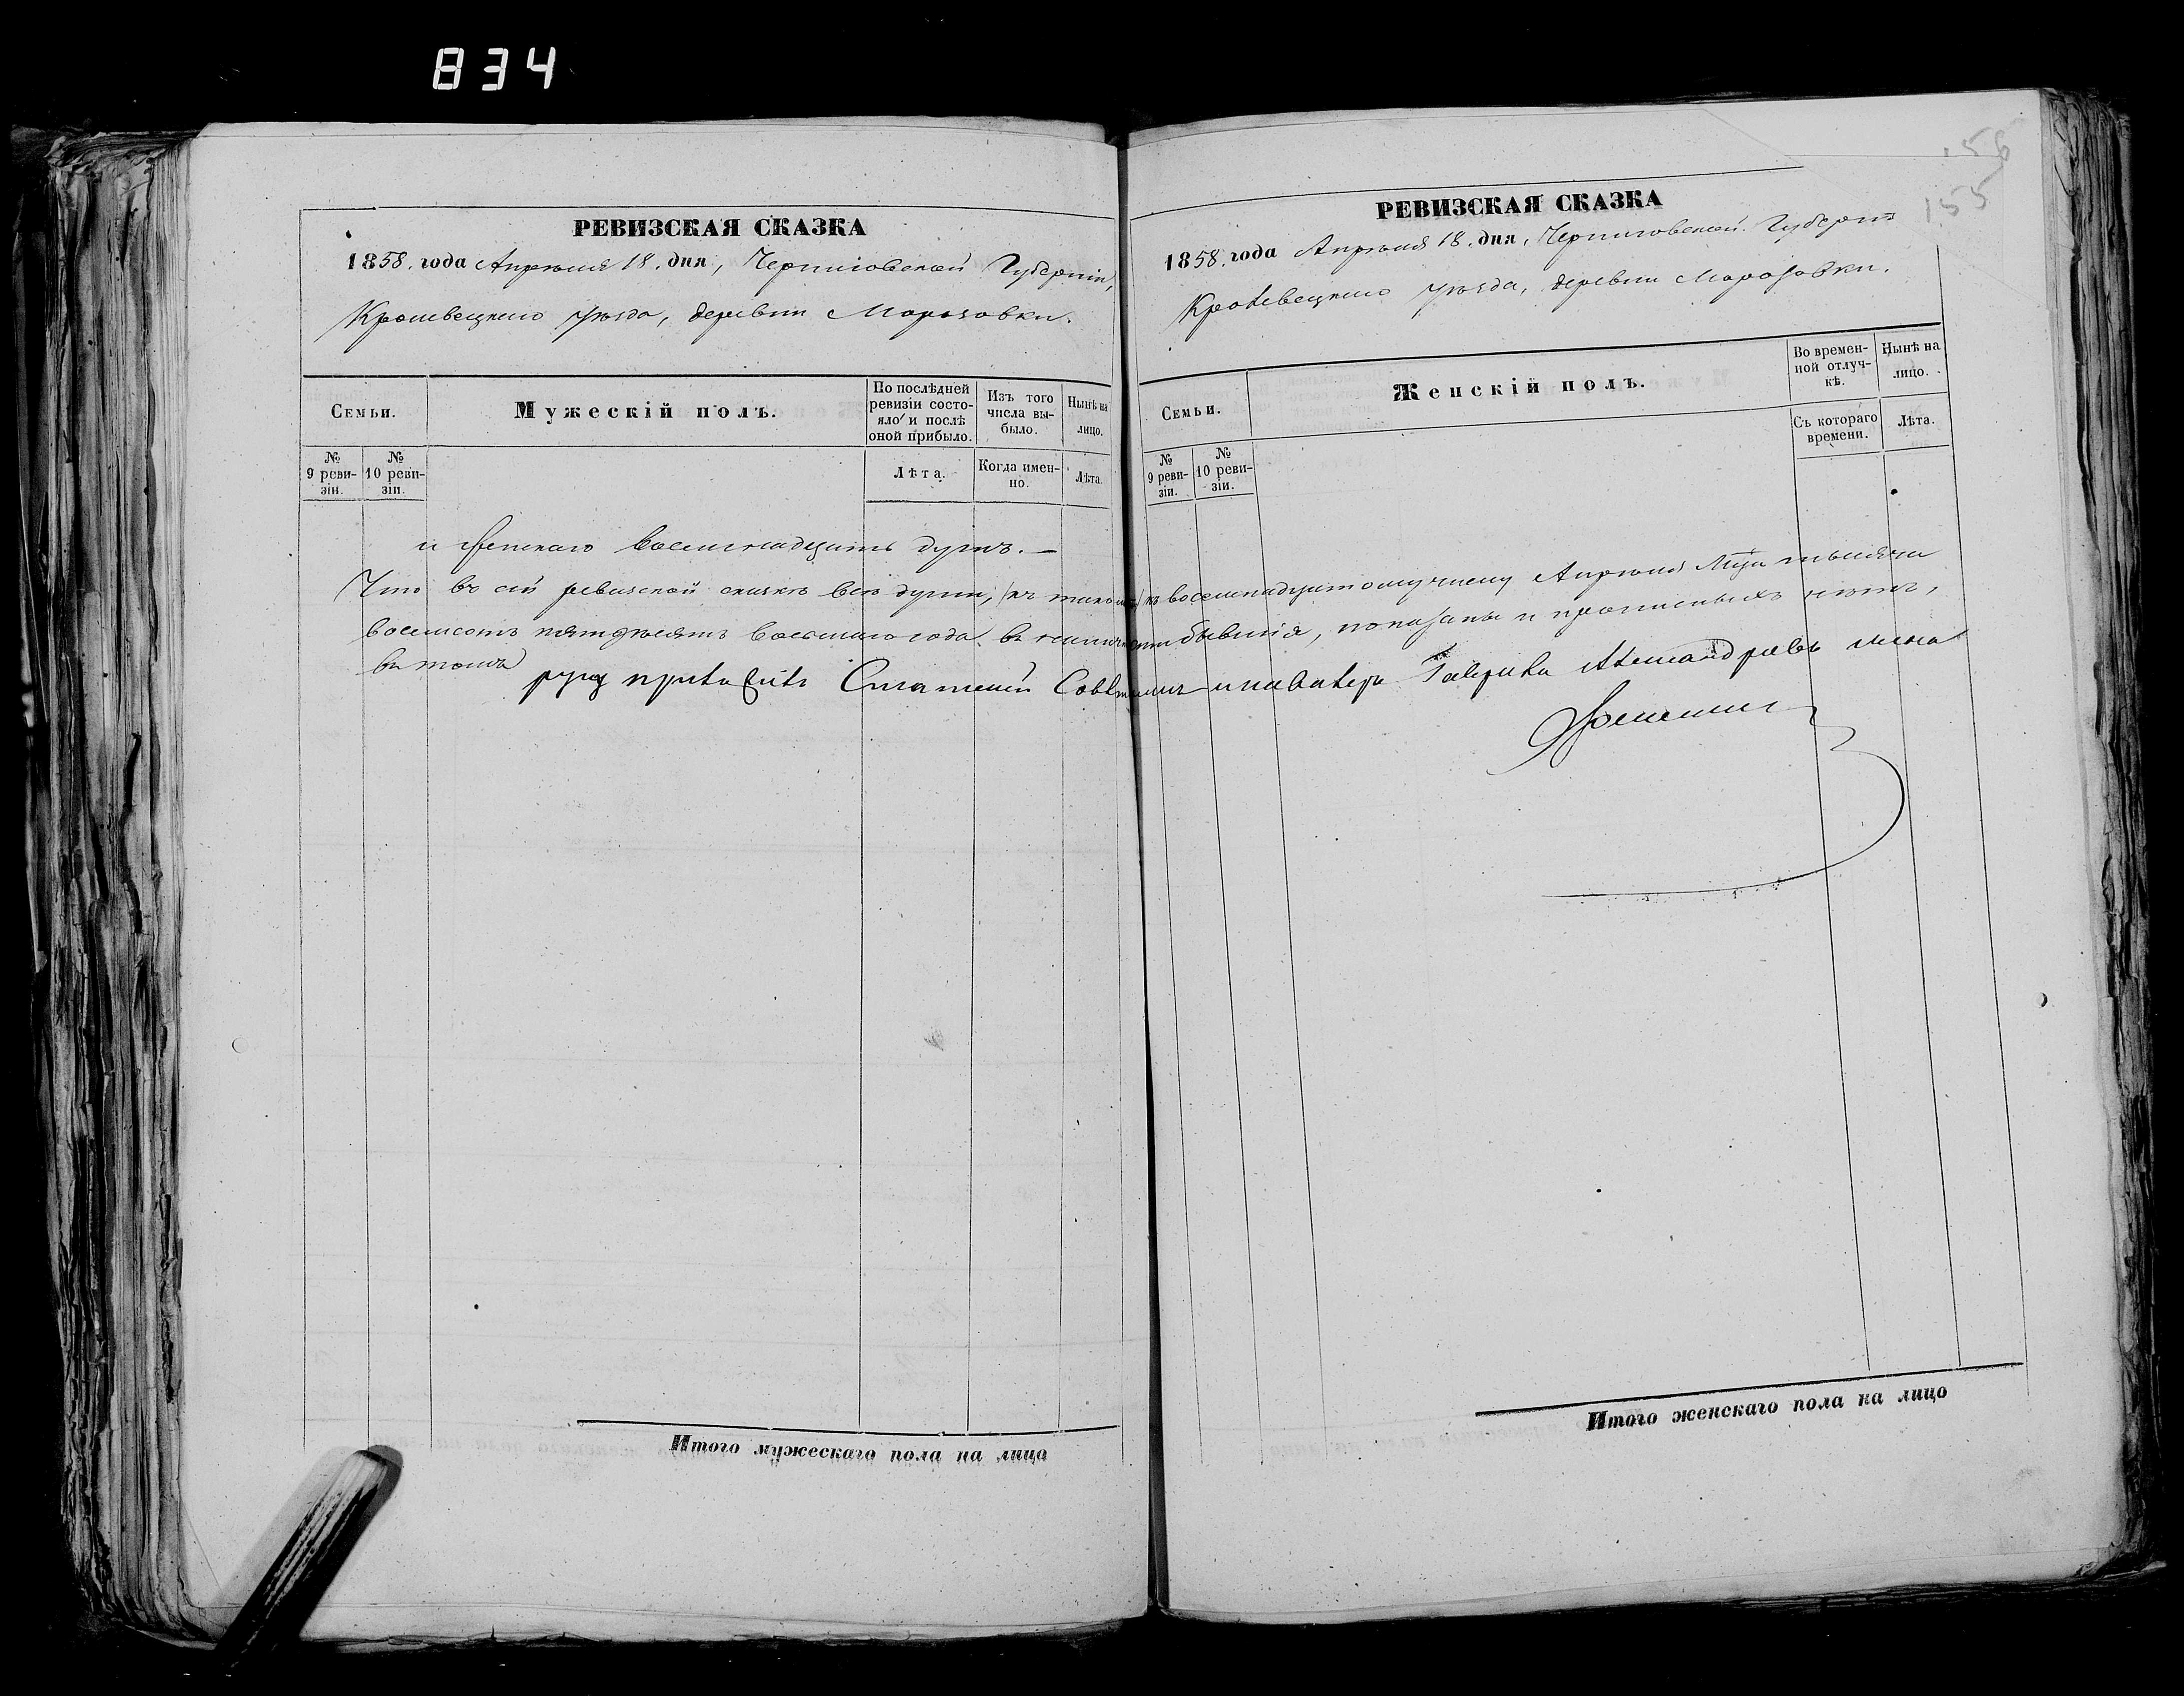 834
156
155
РЕВИЗСКАЯ СКАЗКА
1858. года Апрѣля 18. дня, Черниговской Губерніи,
Кролевецкаго уѣзда, деревни Морозовки.
Семьи.
Мужескій полъ.
По послѣдней ревизіи состояло и послѣ оной прибыло.
Изъ того числа выбыло.
Нынѣ на лицо.
№ 9 ревизіи.
№ 10 ревизіи.
Лѣта.
Когда именно.
Лѣта.
РЕВИЗСКАЯ СКАЗКА
1858. года Апрѣля 18. дня, Черниговской Губерніи
Кролевецкаго уѣзда, деревни Морозовки.
Семьи.
Женскій полъ.
Во временной отлучкѣ.
Нынѣ на лицо.
№ 9 ревизіи.
№ 10 ревизіи.
Съ котораго времени.
Лѣта.
и женскаго восемнадцать душъ. —
Что въ сей ревизской сказкѣ всѣ души, къ восемнадцатому числу Апрѣля тысяча
восемсотъ пятдесятъ восьмаго года въ наличности бывшія, показаны и прописныхъ нѣтъ,
въ томъ руку приложилъ Статскій Совѣтникъ и кавалеръ Гаврила Александровъ сынъ
Итого мужескаго пола на лицо
Итого женскаго пола на лицо